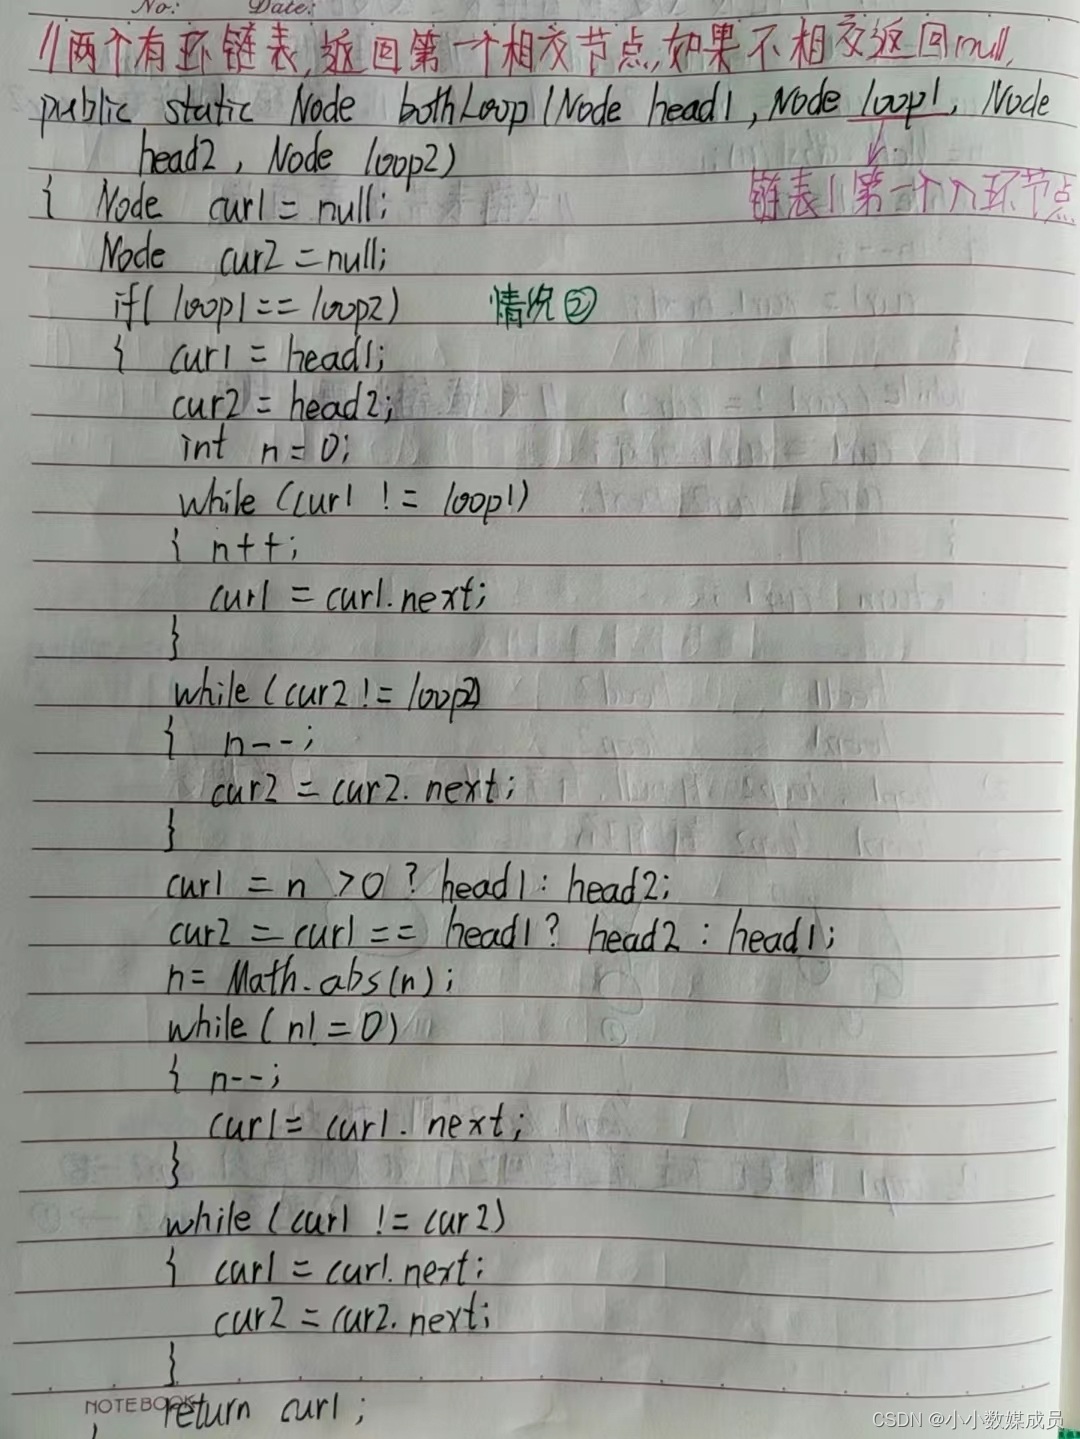 No: Date:
//两个有环链表,返回第一个相交节点,如果不相交返回null,
public static Node bothLoop(Node head1, Node loop1, Node
head2, Node loop2)
链表1第一个入环节点
{ Node cur1 = null;
Node cur2 = null;
if( loop1 == loop2) 情况②
{ cur1 = head1;
cur2 = head2;
int n = 0;
while (cur1 != loop1)
{ n++;
cur1 = cur1.next;
}
while (cur2 != loop2)
{ n--;
cur2 = cur2.next;
}
cur1 = n > 0 ? head1 : head2;
cur2 = cur1 == head1 ? head2 : head1;
n = Math.abs(n);
while ( n != 0)
{ n--;
cur1 = cur1.next;
}
while (cur1 != cur2)
{ cur1 = cur1.next;
cur2 = cur2.next;
}
return cur1;
NOTEBOOK
CSDN @小小数媒成员